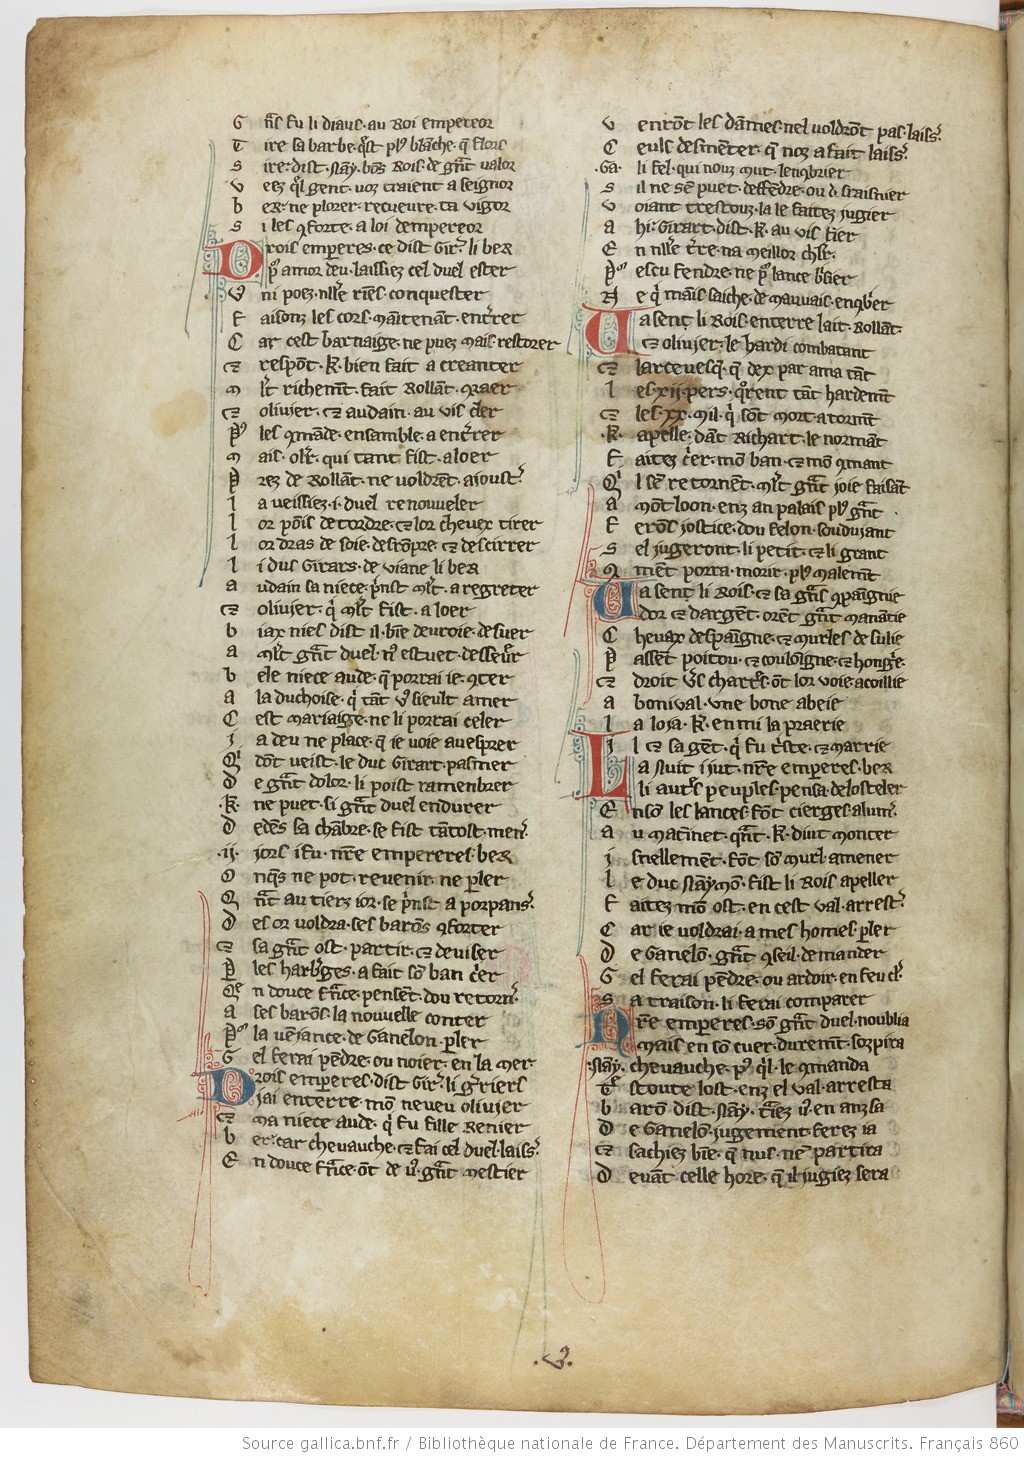 G ñs fu li diaus au Roi empereor
T ire sa barbe q̃st plꝰ blãche q̃ flors
S ire dist Naỹ bõs Rois de g̃nt valor
V eez q̃l gent uoz traient a seignor
b er ne plorer recueure ta vigor
S i les ꝯforte a loi dempereor
Drois emperes ce dist Gir̃ li ber
p̃ amor deu laissiez cel duel ester
V ni poez nlle riẽs conquester
F aisonz les cors maĩtenãt ent̃rer
C ar cest barnaige ne puez mais restorer
ez respõt K. bien fait a creanter
M lt̃ richemẽt fait Rollãt ꝯraer
ez olivier ez audain au vis cler
P̃ les ꝯmãde ensamble a ent̃rer
M ais olĩ qui tant fist a loer
P rez de Rollãt ne voldrẽt aioust̃
l a veissiez .i. duel renouueler
l or põis detordre ez lor cheuex tirer
l or dras de soie desrõpre ez descirrer
l i dus Girars de viane li ber
a udain sa niece p̃nst mlt̃ a regreter
ez olivier q̃ mlt̃ fist a loer
b iax nies dist il biẽ deuroie desuer
a mlt̃ g̃nt duel m̃ estuet desseur̃
b ele niece aude q̃ porrai ie ꝯter
a la duchoise q̃ tãt vꝰ sieult amer
C est mariaige ne li porrai celer
J a deu ne place q̃ ie voie auesprer
Q̃ dõt veist le duc Girart pasmer
D e g̃nt dolor li poist ramenbrer
.K. ne puet si g̃nt duel endurer
D edẽs sa chãbre se fist tãtost men̾
.ij. iors i fu nr̃e empereres ber
O nq̃s ne pot reuenir ne p̱ler
Q̃ nt au tierz ior se p̃nst a porpans̾
D es or voldra ses barõs ꝯforter
ez sa g̃nt ost partir ez deuiser
P̱ les harb̃ges a fait sõ ban c̃er
Q̃ n douce fr̃ce pensẽt dou retorñ
a ses barõs la nouuelle conter
P̃ la vẽjance de Ganelon p̱ler
G el ferai pẽdre ou noier en la mer
Drois emperes dist Gir̃ li g̃rriers
jai enterre mõ neueu olivier
ez ma niece aude q̃ fu fille Renier
b er car cheuauche ez fai cel duel laiss̾
E n douce fr̃ce õt de vꝰ g̃nt mestier
V enrõt les dãmes nel voldrõt pas laiss̾
C euls desmẽter q̃ noz a fait laiss̾
.Ga. li fel qui nouz mut lencõbrier
S il ne se puet deffẽdre ou desraisnier
V oiant trestouz la le faitez jugier
a hi Girart dist .K. au vis fier
E n nlle t̃re na meillor chlr̃
P̃ escu fendre ne p̃ lance b̾sier
N e q̃ mais saiche de mauuais enc̾ber
Ua sent li Rois enterre lait Rollãt
ez olivier le hardi combatant
ez larceuesq̃ q̃ dex par ama tãt
l es xij pers q̃ orent tãt hardemẽt
ez les .XX. mil q̃ sõt mort a tormẽt
.K. apelle dãt Richart le normãt
F aitez c̃er mõ ban ez mõ ꝯmant
Q̃ l se retornẽt mlt̃ g̃nt joie faisãt
a mõt loon enz an palais plꝰ g̃nt
F erõs jostice dou felon soudujant
S el jugeront li petit ez li grant
Q mẽt porra morir plꝰ malemẽt
Ua sent li Rois ez sa g̃ns ꝯpaignie
dor ez dargẽt orẽt g̃nt manãtie
C heuax despaigne ez murles de sulie
P assẽt poitou ez couloigne ez hongr̃e
ez droit v̾s chartr̃s õt lor voie acoillie
a bonival vne bone abeie
l a loja .K. en mi la praerie
Jl ez sa gẽt q̃ fu t̃ste ez marrie
La nuit i jut nr̃e emperes ber
li autr̃s peuples pensa de losteler
E nsõ les lances fõt cierges alum̾
a u matinet q̃nt .K. diut monter
i snellemẽt fõt sõ murl amener
l e duc naymõ fist li Rois apeller
F aitez mõ ost en cest val arrest̾
C ar ie voldrai a mes homes p̱ler
D e Ganelõ g̃nt ꝯseil demander
G el ferai pẽdre ou ardoir en feu cl̾
S a traison li ferai comparer
Nr̃e emperes sõ g̃nt duel noublia
mais en sõ cuer duremẽt sozpira
Naỹ cheuauche p̃ q̃l le ꝯmanda
T̃ stoute lost enz el val arresta
b arõ dist Naỹ t̃iez vꝰ en anz sa
D e Ganelõ jugement ferez ia
ez sachiez biẽ q̃ nus ne partira
D euãt celle hore q̃ il jugiez sera
Source gallica.bnf.fr / Bibliothèque nationale de France. Département des Manuscrits. Français 860